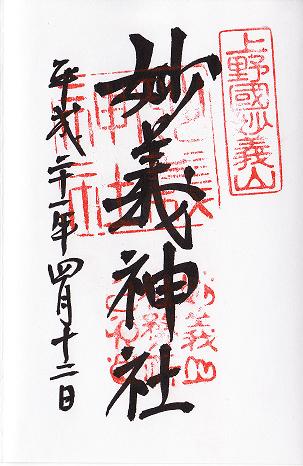 上野國妙義山
妙義神社
平成二十一年四月十二日